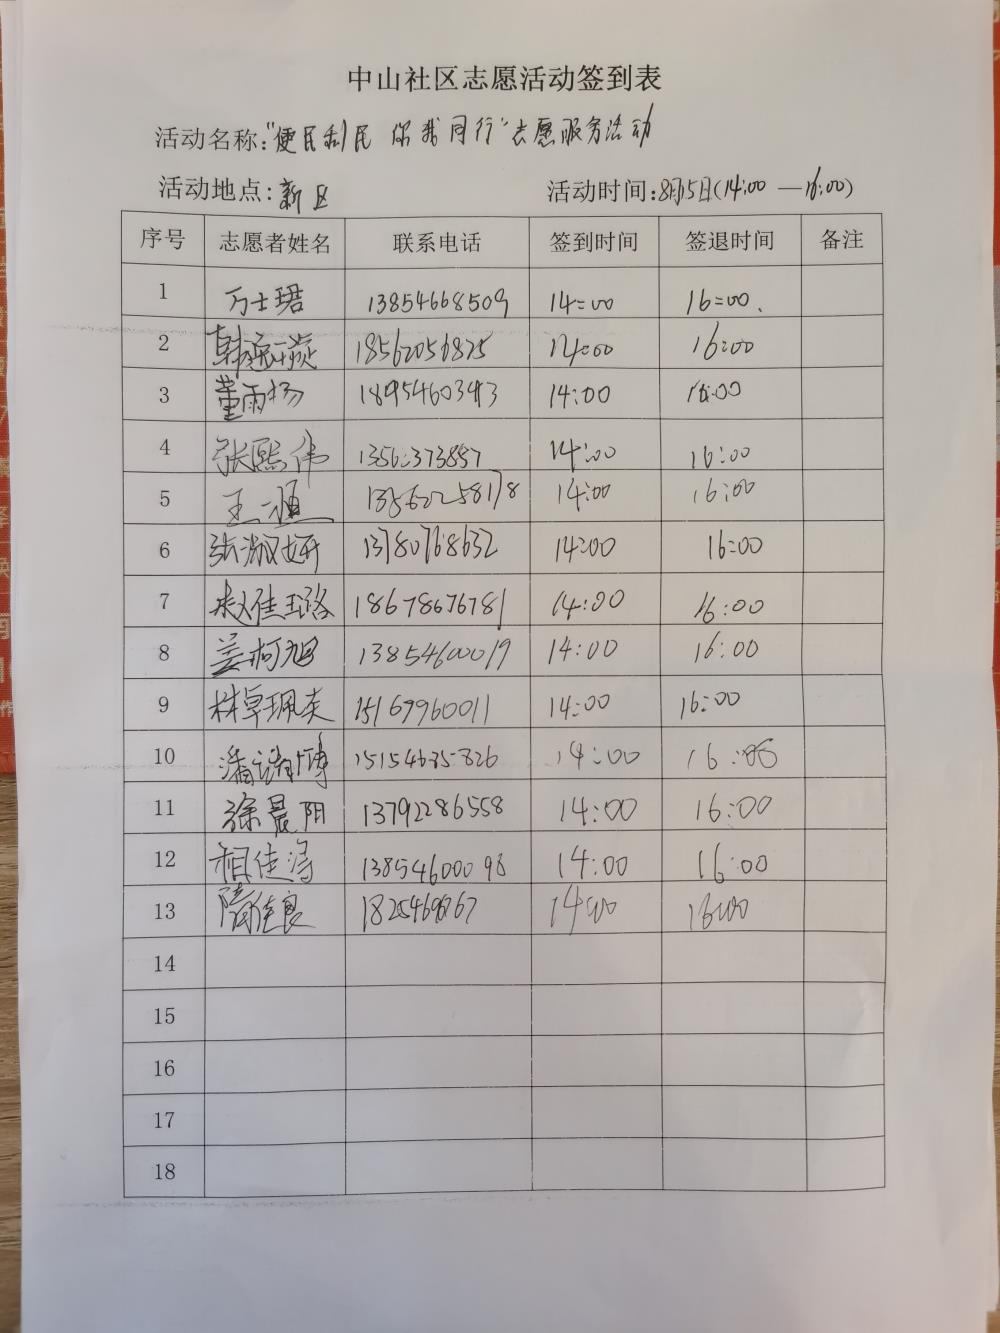 中山社区志愿活动签到表
活动名称:"便民利民 你我同行"志愿服务活动
活动地点:新区 活动时间:8月5日(14:00—16:00)
序号 志愿者姓名 联系电话 签到时间 签退时间 备注
1 万士珺 13854668509 14:00 16:00.
2 18562056825 14:00 16:00
3 董雨杨 14:00 16:00
4 张熙伟 14:00 16:00
5 王一恒 13562258178 14:00 16:00
6 张淑妍 13780768632 14:00 16:00
7 赵佳璐 18678676781 14:00 16:00
8 姜柯旭 13854600019 14:00 16:00
9 林卓珮奕 15169960011 14:00 16:00
10 14:00 16:00
11 徐晨阳 13792286558 14:00 16:00
12 相佳涛 13854600098 14:00 16:00
13 隋佳良 14:00 16:00
14
15
16
17
18